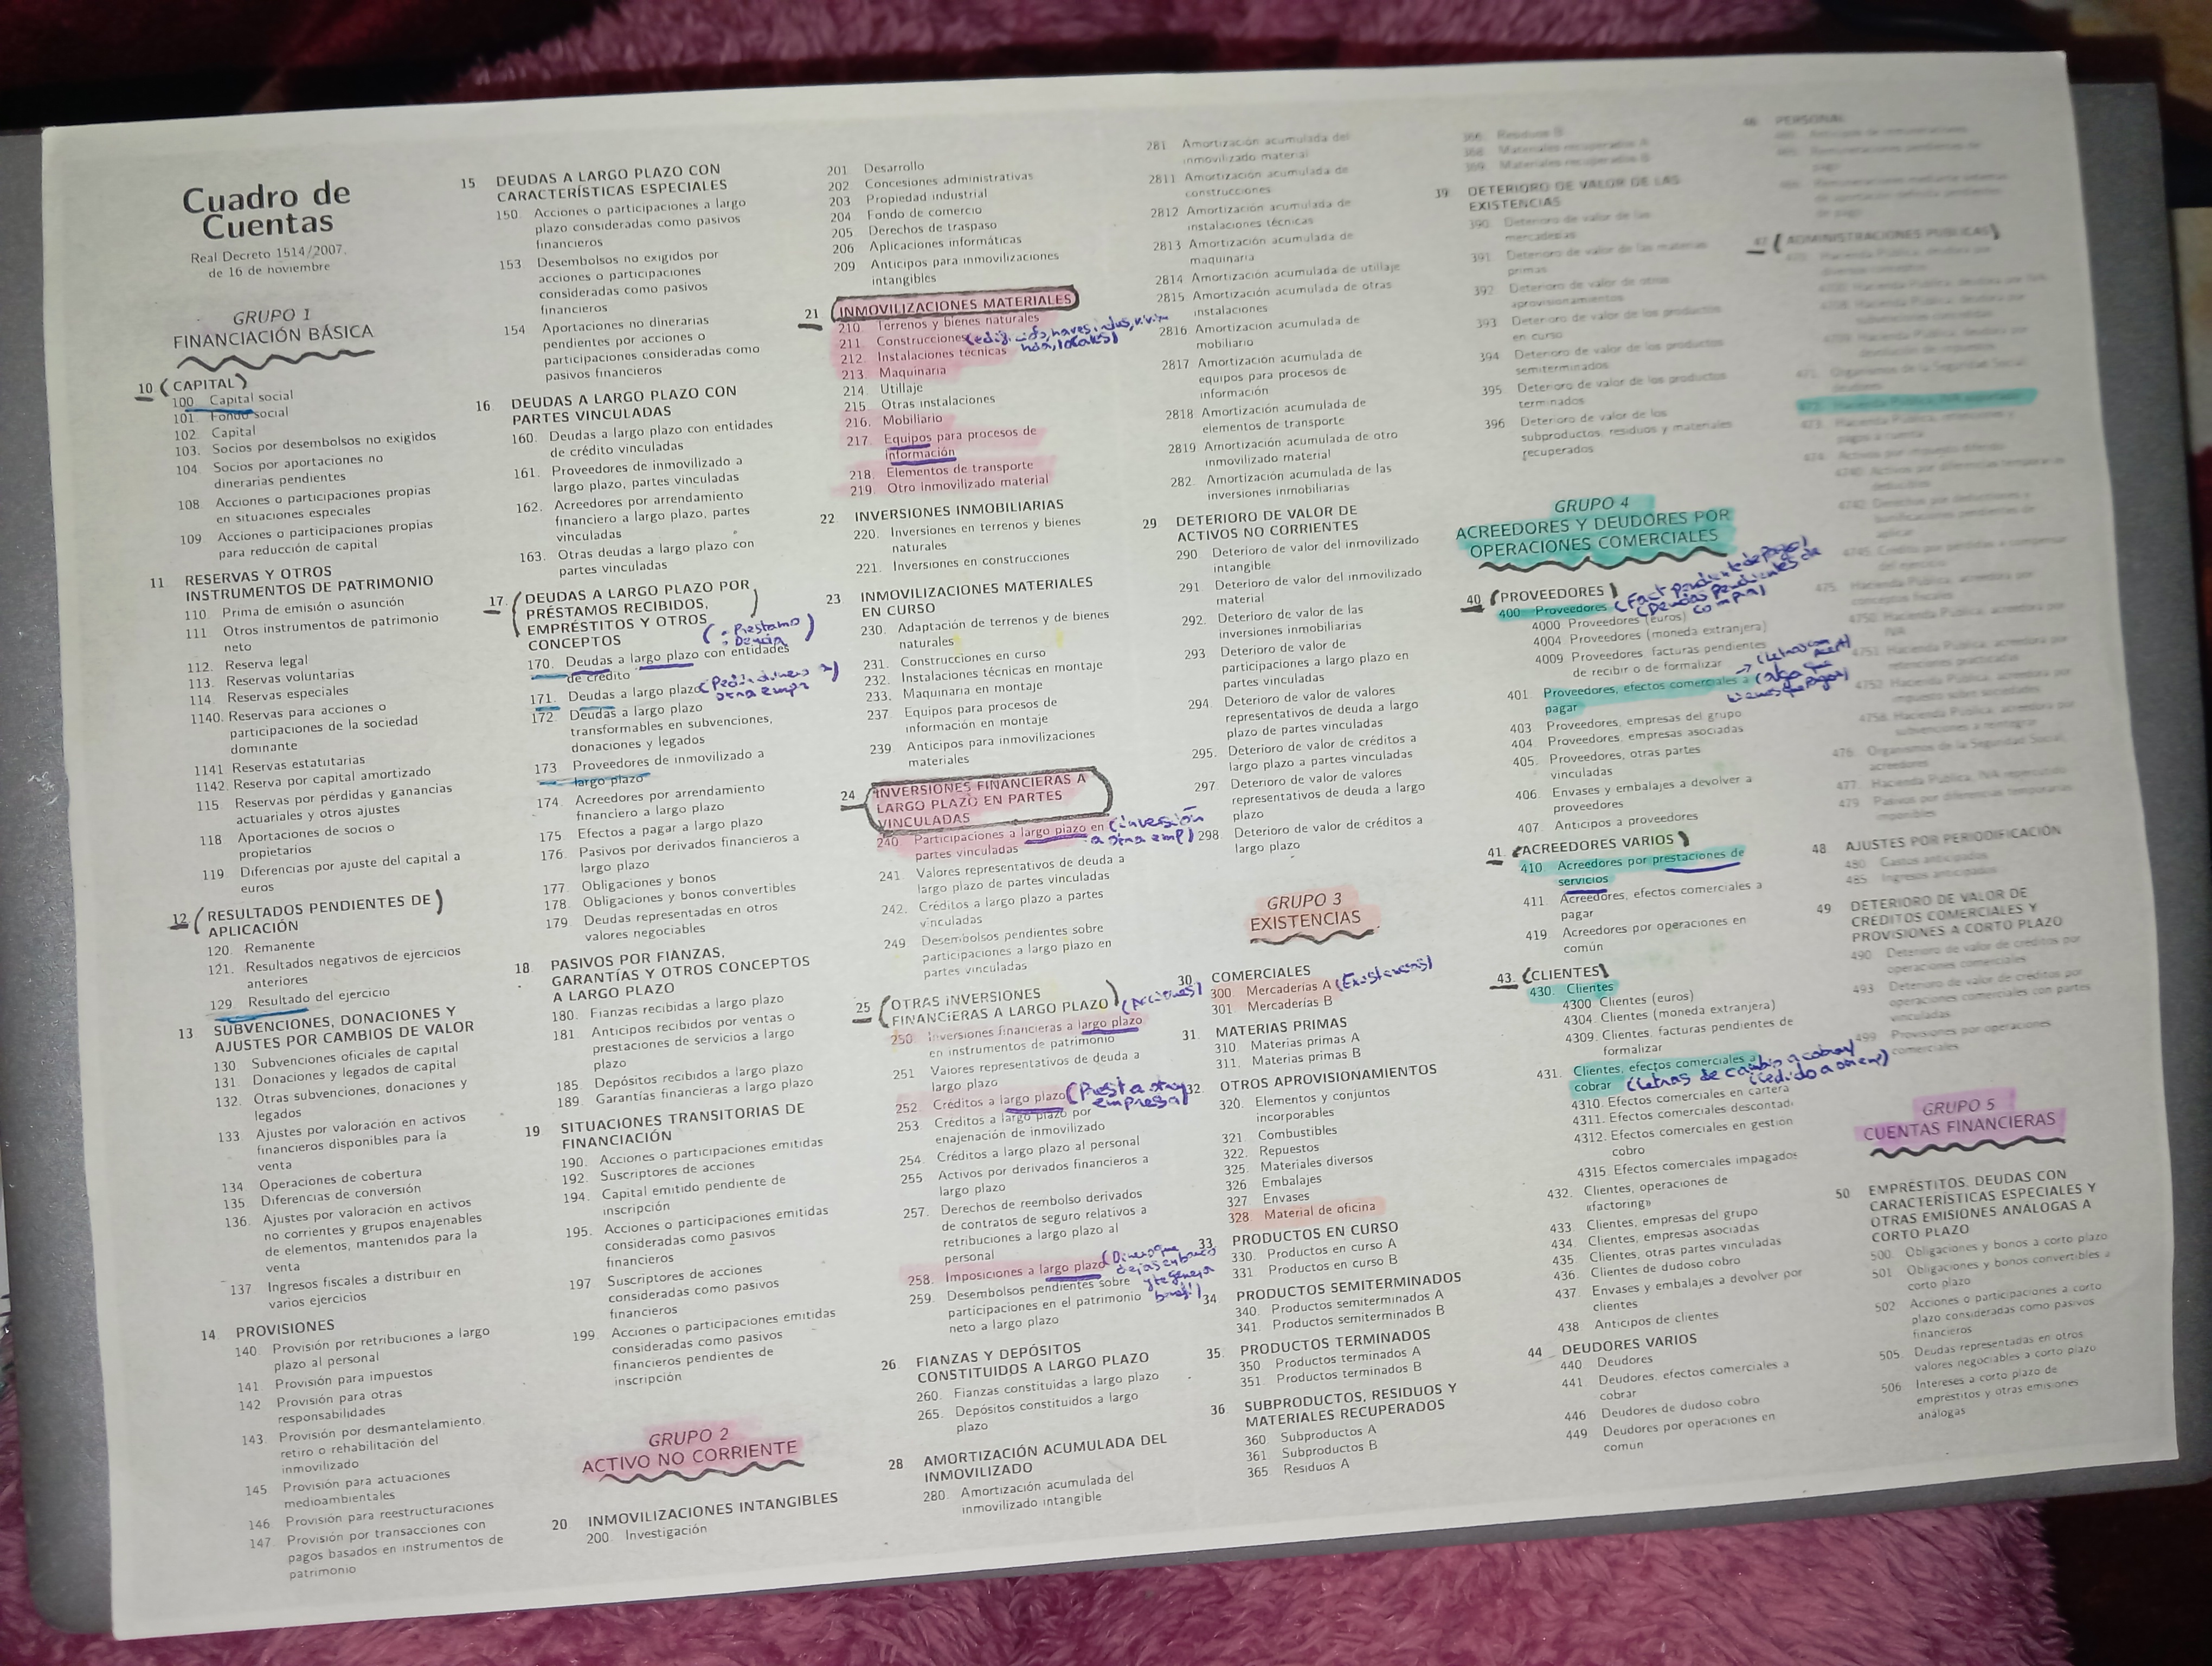 Cuadro de
Cuentas
Real Decreto 1514/2007,
de 16 de noviembre
GRUPO 1
FINANCIACIÓN BÁSICA
10 (CAPITAL)
100 Capital social
101. Fondo social
102. Capital
103. Socios por desembolsos no exigidos
104. Socios por aportaciones no
dinerarias pendientes
108 Acciones o participaciones propias
en situaciones especiales
109 Acciones o participaciones propias
para reducción de capital
11 RESERVAS Y OTROS
INSTRUMENTOS DE PATRIMONIO
110. Prima de emisión o asunción
111 Otros instrumentos de patrimonio
neto
112. Reserva legal
113. Reservas voluntarias
114 Reservas especiales
1140. Reservas para acciones o
participaciones de la sociedad
dominante
1141 Reservas estatutarias
1142. Reserva por capital amortizado
115. Reservas por pérdidas y ganancias
actuariales y otros ajustes
118 Aportaciones de socios o
propietarios
119. Diferencias por ajuste del capital a
euros
12 (RESULTADOS PENDIENTES DE)
APLICACIÓN
120. Remanente
121. Resultados negativos de ejercicios
anteriores
129. Resultado del ejercicio
13 SUBVENCIONES, DONACIONES Y
AJUSTES POR CAMBIOS DE VALOR
130 Subvenciones oficiales de capital
131. Donaciones y legados de capital
132. Otras subvenciones, donaciones y
legados
133. Ajustes por valoración en activos
financieros disponibles para la
venta
134 Operaciones de cobertura
135 Diferencias de conversión
136. Ajustes por valoración en activos
no corrientes y grupos enajenables
de elementos, mantenidos para la
venta
137 Ingresos fiscales a distribuir en
varios ejercicios
14 PROVISIONES
140. Provisión por retribuciones a largo
plazo al personal
141 Provisión para impuestos
142 Provisión para otras
responsabilidades
143. Provisión por desmantelamiento,
retiro o rehabilitación del
inmovilizado
145 Provisión para actuaciones
medioambientales
146 Provisión para reestructuraciones
147 Provisión por transacciones con
pagos basados en instrumentos de
patrimonio
15 DEUDAS A LARGO PLAZO CON
CARACTERÍSTICAS ESPECIALES
150. Acciones o participaciones a largo
plazo consideradas como pasivos
financieros
153 Desembolsos no exigidos por
acciones o participaciones
consideradas como pasivos
financieros
154 Aportaciones no dinerarias
pendientes por acciones o
participaciones consideradas como
pasivos financieros
16 DEUDAS A LARGO PLAZO CON
PARTES VINCULADAS
160. Deudas a largo plazo con entidades
de crédito vinculadas
161. Proveedores de inmovilizado a
largo plazo, partes vinculadas
162. Acreedores por arrendamiento
financiero a largo plazo, partes
vinculadas
163. Otras deudas a largo plazo con
partes vinculadas
17. (DEUDAS A LARGO PLAZO POR
PRÉSTAMOS RECIBIDOS,
EMPRÉSTITOS Y OTROS
CONCEPTOS)
(- Préstamo
170. Deudas a largo plazo con entidades
de crédito
171. Deudas a largo plazo
172 Deudas a largo plazo
transformables en subvenciones,
donaciones y legados
173 Proveedores de inmovilizado a
largo plazo
174. Acreedores por arrendamiento
financiero a largo plazo
175 Efectos a pagar a largo plazo
176. Pasivos por derivados financieros a
largo plazo
177. Obligaciones y bonos
178. Obligaciones y bonos convertibles
179 Deudas representadas en otros
valores negociables
18 PASIVOS POR FIANZAS,
GARANTÍAS Y OTROS CONCEPTOS
A LARGO PLAZO
180. Fianzas recibidas a largo plazo
181 Anticipos recibidos por ventas o
prestaciones de servicios a largo
plazo
185. Depósitos recibidos a largo plazo
189. Garantías financieras a largo plazo
19 SITUACIONES TRANSITORIAS DE
FINANCIACIÓN
190. Acciones o participaciones emitidas
192. Suscriptores de acciones
194. Capital emitido pendiente de
inscripción
195. Acciones o participaciones emitidas
consideradas como pasivos
financieros
197 Suscriptores de acciones
consideradas como pasivos
financieros
199. Acciones o participaciones emitidas
consideradas como pasivos
financieros pendientes de
inscripción
GRUPO 2
ACTIVO NO CORRIENTE
20 INMOVILIZACIONES INTANGIBLES
200. Investigación
201 Desarrollo
202 Concesiones administrativas
203 Propiedad industrial
204 Fondo de comercio
205 Derechos de traspaso
206 Aplicaciones informáticas
209 Anticipos para inmovilizaciones
intangibles
21 (INMOVILIZACIONES MATERIALES
210. Terrenos y bienes naturales
211 Construcciones
212. Instalaciones técnicas
213. Maquinaria
214. Utillaje
215. Otras instalaciones
216. Mobiliario
217. Equipos para procesos de
información
218. Elementos de transporte
219. Otro inmovilizado material
22 INVERSIONES INMOBILIARIAS
220. Inversiones en terrenos y bienes
naturales
221. Inversiones en construcciones
23 INMOVILIZACIONES MATERIALES
EN CURSO
230. Adaptación de terrenos y de bienes
naturales
231. Construcciones en curso
232. Instalaciones técnicas en montaje
233. Maquinaria en montaje
237 Equipos para procesos de
información en montaje
239. Anticipos para inmovilizaciones
materiales
24 INVERSIONES FINANCIERAS A
LARGO PLAZO EN PARTES
VINCULADAS
240. Participaciones a largo plazo en (inversión
partes vinculadas a otra emp)
241 Valores representativos de deuda a
largo plazo de partes vinculadas
242. Créditos a largo plazo a partes
vinculadas
249 Desembolsos pendientes sobre
participaciones a largo plazo en
partes vinculadas
25 (OTRAS INVERSIONES
FINANCIERAS A LARGO PLAZO) (Acciones)
250. Inversiones financieras a largo plazo
en instrumentos de patrimonio
251 Valores representativos de deuda a
largo plazo
252 Créditos a largo plazo (Prest a otra
empresa)
253 Créditos a largo plazo por
enajenación de inmovilizado
254. Créditos a largo plazo al personal
255 Activos por derivados financieros a
largo plazo
257. Derechos de reembolso derivados
de contratos de seguro relativos a
retribuciones a largo plazo al
personal
258. Imposiciones a largo plazo (Dinero que
259. Desembolsos pendientes sobre
participaciones en el patrimonio
neto a largo plazo
26 FIANZAS Y DEPÓSITOS
CONSTITUIDOS A LARGO PLAZO
260. Fianzas constituidas a largo plazo
265. Depósitos constituidos a largo
plazo
28 AMORTIZACIÓN ACUMULADA DEL
INMOVILIZADO
280. Amortización acumulada del
inmovilizado intangible
281 Amortización acumulada del
inmovilizado material
2811 Amortización acumulada de
construcciones
2812 Amortización acumulada de
instalaciones técnicas
2813 Amortización acumulada de
maquinaria
2814 Amortización acumulada de utillaje
2815 Amortización acumulada de otras
instalaciones
2816 Amortización acumulada de
mobiliario
2817 Amortización acumulada de
equipos para procesos de
información
2818 Amortización acumulada de
elementos de transporte
2819 Amortización acumulada de otro
inmovilizado material
282. Amortización acumulada de las
inversiones inmobiliarias
29 DETERIORO DE VALOR DE
ACTIVOS NO CORRIENTES
290 Deterioro de valor del inmovilizado
intangible
291. Deterioro de valor del inmovilizado
material
292. Deterioro de valor de las
inversiones inmobiliarias
293 Deterioro de valor de
participaciones a largo plazo en
partes vinculadas
294. Deterioro de valor de valores
representativos de deuda a largo
plazo de partes vinculadas
295. Deterioro de valor de créditos a
largo plazo a partes vinculadas
297. Deterioro de valor de valores
representativos de deuda a largo
plazo
298. Deterioro de valor de créditos a
largo plazo
GRUPO 3
EXISTENCIAS
30 COMERCIALES
300. Mercaderías A (Existencias)
301 Mercaderías B
31. MATERIAS PRIMAS
310. Materias primas A
311. Materias primas B
32. OTROS APROVISIONAMIENTOS
320. Elementos y conjuntos
incorporables
321. Combustibles
322. Repuestos
325. Materiales diversos
326 Embalajes
327 Envases
328 Material de oficina
33. PRODUCTOS EN CURSO
330. Productos en curso A
331 Productos en curso B
34 PRODUCTOS SEMITERMINADOS
340. Productos semiterminados A
341. Productos semiterminados B
35. PRODUCTOS TERMINADOS
350 Productos terminados A
351 Productos terminados B
36 SUBPRODUCTOS, RESIDUOS Y
MATERIALES RECUPERADOS
360 Subproductos A
361 Subproductos B
365 Residuos A
366. Residuos B
368. Materiales recuperados A
369. Materiales recuperados B
39. DETERIORO DE VALOR DE LAS
EXISTENCIAS
390. Deterioro de valor de las
mercaderías
391. Deterioro de valor de las materias
primas
392 Deterioro de valor de otros
aprovisionamientos
393 Deterioro de valor de los productos
en curso
394 Deterioro de valor de los productos
semiterminados
395 Deterioro de valor de los productos
terminados
396 Deterioro de valor de los
subproductos, residuos y materiales
recuperados
GRUPO 4
ACREEDORES Y DEUDORES POR
OPERACIONES COMERCIALES
40 (PROVEEDORES)
400 Proveedores (Fact pendiente de pago)
(Deudas pendientes de
compra)
4000 Proveedores (euros)
4004 Proveedores (moneda extranjera)
4009 Proveedores, facturas pendientes
de recibir o de formalizar
401. Proveedores, efectos comerciales a
pagar
403 Proveedores, empresas del grupo
404. Proveedores, empresas asociadas
405. Proveedores, otras partes
vinculadas
406. Envases y embalajes a devolver a
proveedores
407 Anticipos a proveedores
41. (ACREEDORES VARIOS)
410 Acreedores por prestaciones de
servicios
411 Acreedores, efectos comerciales a
pagar
419 Acreedores por operaciones en
común
43. (CLIENTES)
430. Clientes
4300 Clientes (euros)
4304 Clientes (moneda extranjera)
4309. Clientes, facturas pendientes de
formalizar
431. Clientes, efectos comerciales a
cobrar (letras de cambio a cobrar)
4310. Efectos comerciales en cartera
4311. Efectos comerciales descontad.
4312. Efectos comerciales en gestión
cobro
4315 Efectos comerciales impagados
432. Clientes, operaciones de
«factoring»
433 Clientes, empresas del grupo
434. Clientes, empresas asociadas
435 Clientes, otras partes vinculadas
436. Clientes de dudoso cobro
437. Envases y embalajes a devolver por
clientes
438 Anticipos de clientes
44 DEUDORES VARIOS
440 Deudores
441 Deudores, efectos comerciales a
cobrar
446 Deudores de dudoso cobro
449 Deudores por operaciones en
común
46 PERSONAL
47 (ADMINISTRACIONES PÚBLICAS)
476. Organismos de la Seguridad Social,
acreedores
477. Hacienda Pública, IVA repercutido
479 Pasivos por diferencias temporarias
imponibles
48 AJUSTES POR PERIODIFICACIÓN
480 Gastos anticipados
485 Ingresos anticipados
49 DETERIORO DE VALOR DE
CRÉDITOS COMERCIALES Y
PROVISIONES A CORTO PLAZO
490 Deterioro de valor de créditos por
operaciones comerciales
493 Deterioro de valor de créditos por
operaciones comerciales con partes
vinculadas
499 Provisiones por operaciones
comerciales
GRUPO 5
CUENTAS FINANCIERAS
50 EMPRÉSTITOS, DEUDAS CON
CARACTERÍSTICAS ESPECIALES Y
OTRAS EMISIONES ANÁLOGAS A
CORTO PLAZO
500. Obligaciones y bonos a corto plazo
501 Obligaciones y bonos convertibles a
corto plazo
502 Acciones o participaciones a corto
plazo consideradas como pasivos
financieros
505. Deudas representadas en otros
valores negociables a corto plazo
506 Intereses a corto plazo de
empréstitos y otras emisiones
análogas